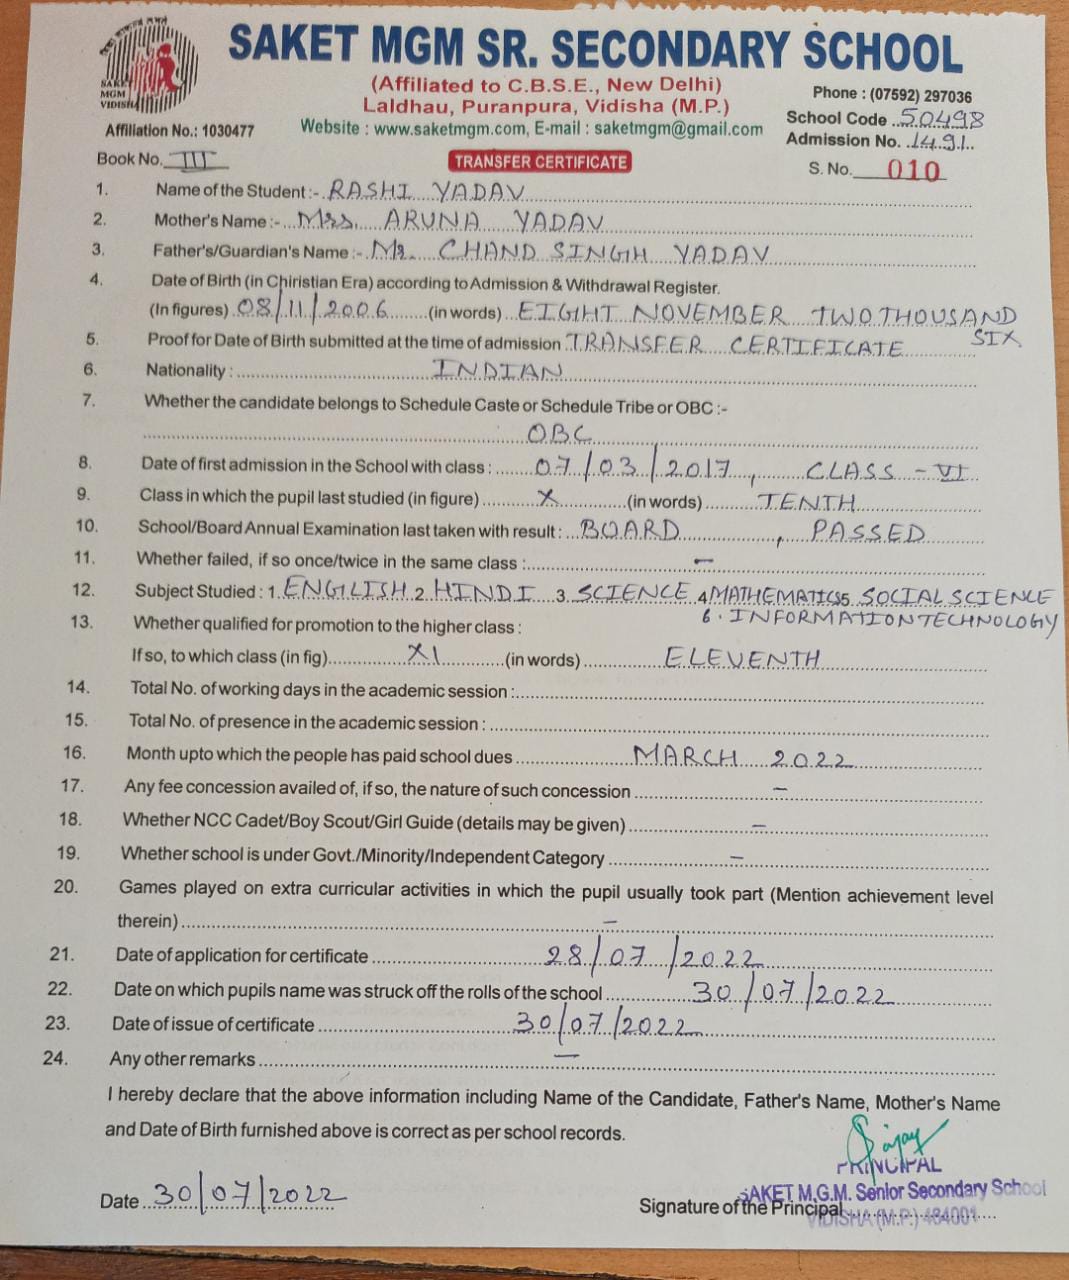 SAKET MGM SR. SECONDARY SCHOOL
SAKET
MGM
VIDISHA
(Affiliated to C.B.S.E., New Delhi)
Laldhau, Puranpura, Vidisha (M.P.)
Phone : (07592) 297036
Affiliation No.: 1030477
Website : www.saketmgm.com, E-mail : saketmgm@gmail.com
School Code 50498
Admission No. 1491
Book No. III
TRANSFER CERTIFICATE
S. No. 010
1. Name of the Student :- RASHI YADAV
2. Mother's Name :- Mrs. ARUNA YADAV
3. Father's/Guardian's Name :- Mr. CHAND SINGH YADAV
4. Date of Birth (in Chiristian Era) according to Admission & Withdrawal Register.
(In figures) 08/11/2006 (in words) EIGHT NOVEMBER TWO THOUSAND
SIX
5. Proof for Date of Birth submitted at the time of admission TRANSFER CERTIFICATE
6. Nationality : INDIAN
7. Whether the candidate belongs to Schedule Caste or Schedule Tribe or OBC :-
OBC
8. Date of first admission in the School with class : 07/03/2017, CLASS - VI
9. Class in which the pupil last studied (in figure) X (in words) TENTH
10. School/Board Annual Examination last taken with result : BOARD, PASSED
11. Whether failed, if so once/twice in the same class : -
12. Subject Studied : 1. ENGLISH 2. HINDI 3. SCIENCE 4 MATHEMATICS 5. SOCIAL SCIENCE
6. INFORMATION TECHNOLOGY
13. Whether qualified for promotion to the higher class :
If so, to which class (in fig) XI (in words) ELEVENTH
14. Total No. of working days in the academic session :
15. Total No. of presence in the academic session :
16. Month upto which the people has paid school dues MARCH 2022
17. Any fee concession availed of, if so, the nature of such concession -
18. Whether NCC Cadet/Boy Scout/Girl Guide (details may be given) -
19. Whether school is under Govt./Minority/Independent Category -
20. Games played on extra curricular activities in which the pupil usually took part (Mention achievement level
therein) -
21. Date of application for certificate 28/07/2022
22. Date on which pupils name was struck off the rolls of the school 30/07/2022
23. Date of issue of certificate 30/07/2022
24. Any other remarks -
I hereby declare that the above information including Name of the Candidate, Father's Name, Mother's Name
and Date of Birth furnished above is correct as per school records.
PRINCIPAL
SAKET M.G.M. Senior Secondary School
Date 30/07/2022
Signature of the Principal
VIDISHA (M.P.) 464001